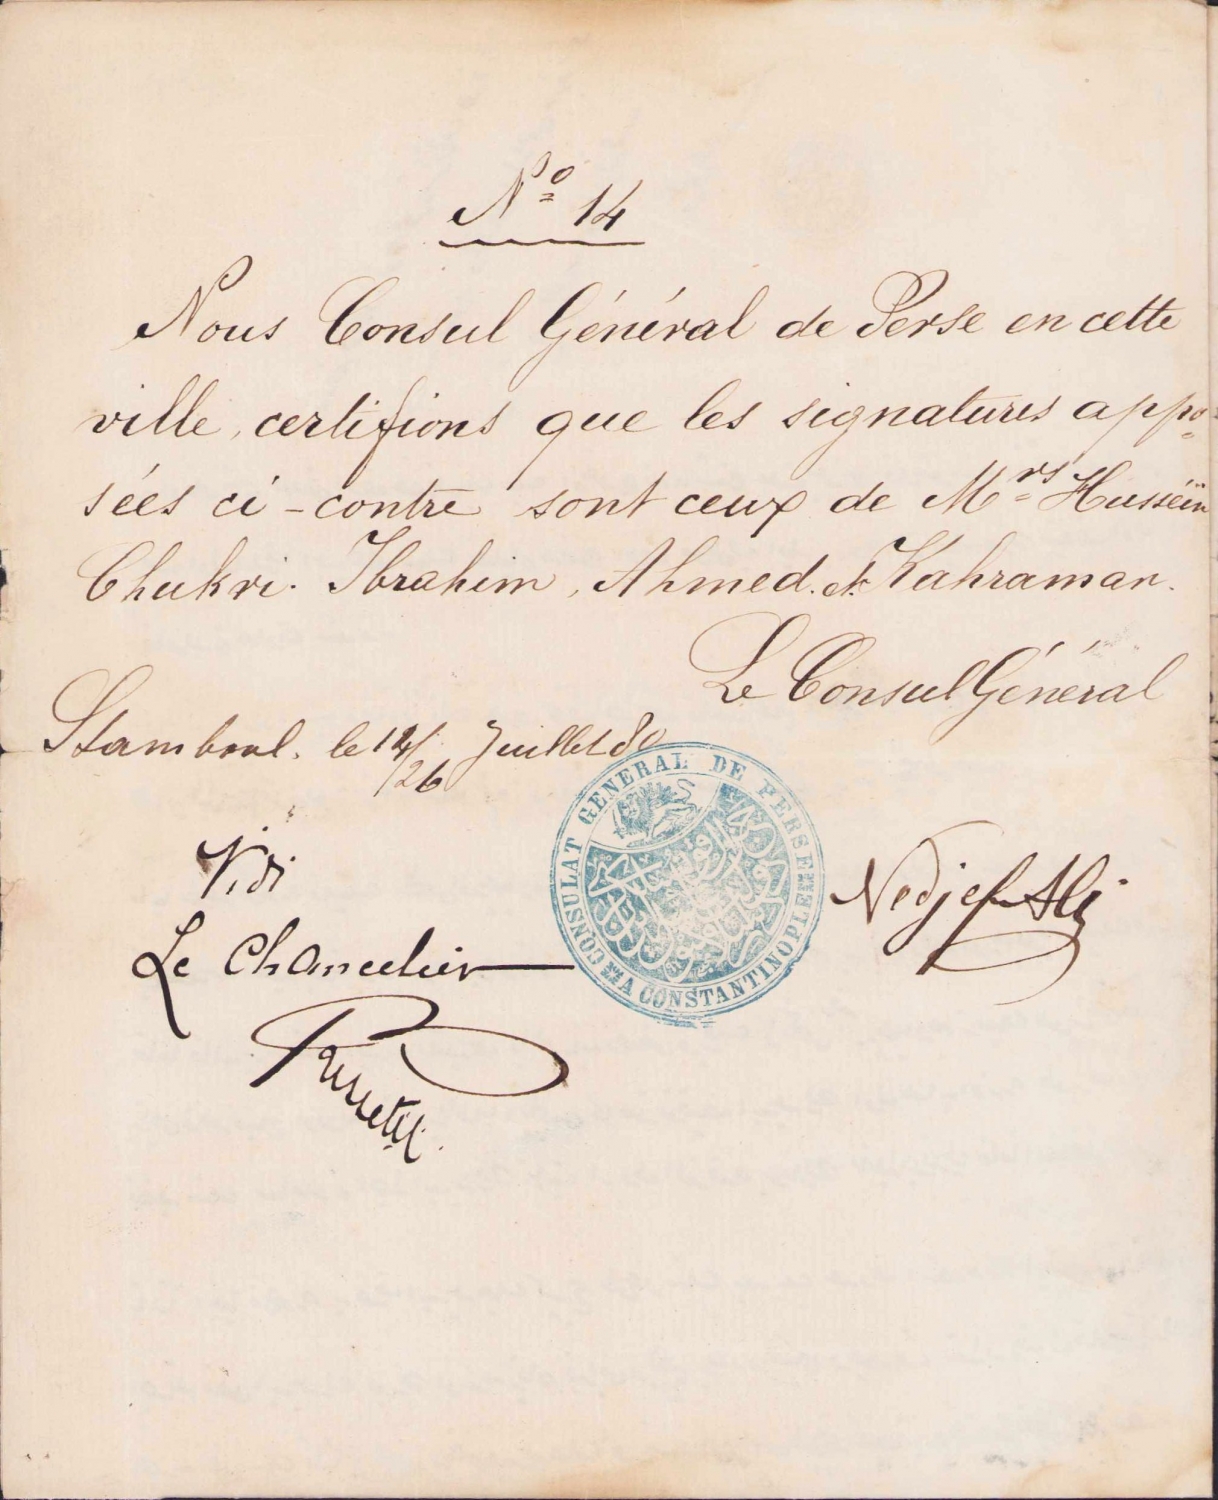 Nº 14
Nous Consul Général de Perse en cette
ville, certifions que les signatures appo=
sées ci-contre sont ceux de Mrs Husséïn
Chukri. Ibrahim, Ahmed. & Kahraman.
Le Consul Général
Stamboul. le 14/26 Juillet 80
CONSULAT GENERAL DE PERSE
A CONSTANTINOPLE
Vidi
Nedjef Ali
Le Chancelier